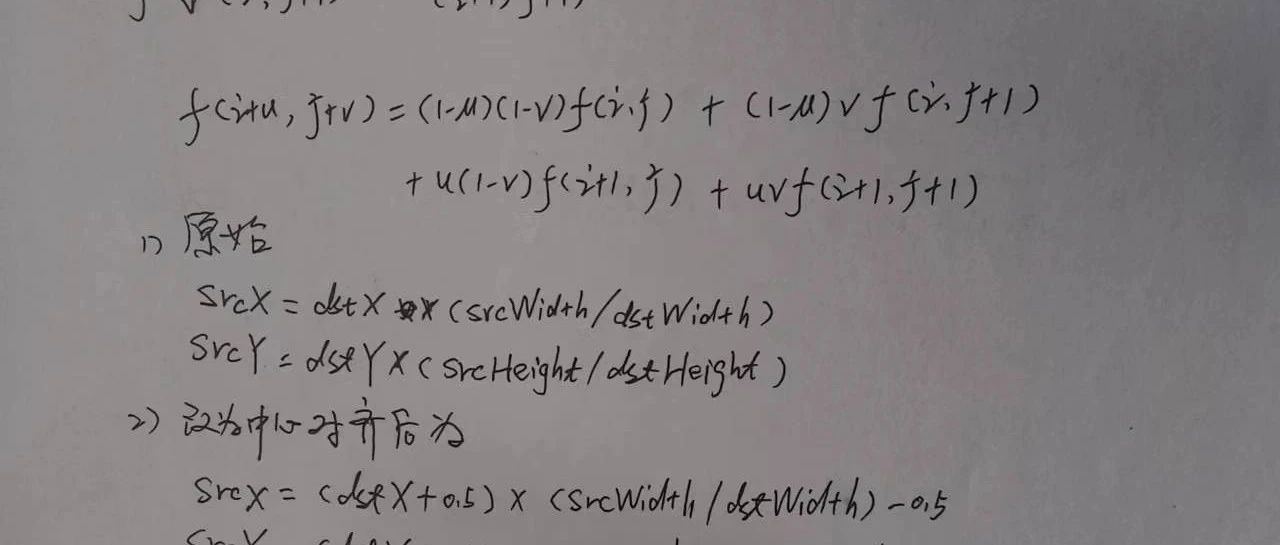 f(i+u, j+v) = (1-u)(1-v)f(i,j) + (1-u)v f(i,j+1)
+ u(1-v)f(i+1,j) + uvf(i+1,j+1)
1) 原始
srcX = dstX × (srcWidth/dstWidth)
srcY = dstY × (srcHeight/dstHeight)
2) 改为中心对齐后为
srcX = (dstX+0.5) × (srcWidth/dstWidth) -0.5